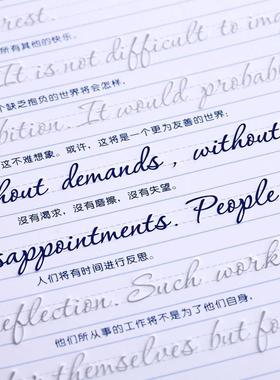 rest.
所有其他的快乐。
It is not difficult to im
个缺乏抱负的世界将会怎样,
bition. It would probab
这不难想象。或许,这将是一个更为友善的世界:
hout demands, without
沒有渴求,沒有磨擦,沒有失望。
sappointments. People
人们将有时间进行反思。
eflection. Such work
他们所从事的工作将不是为了他们自身,
themselves but fo